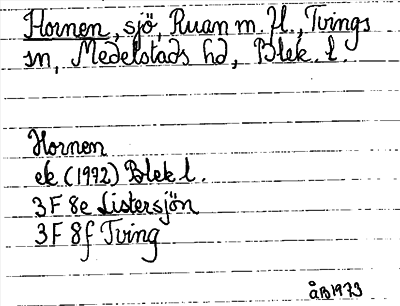 Hornen, sjö, Ruan m. fl., Tvings
sn, Medelstads hd, Blek. l.
Hornen
ek (1992) Blek l.
3F 8e Listersjön
3F 8f Tving
åB1973